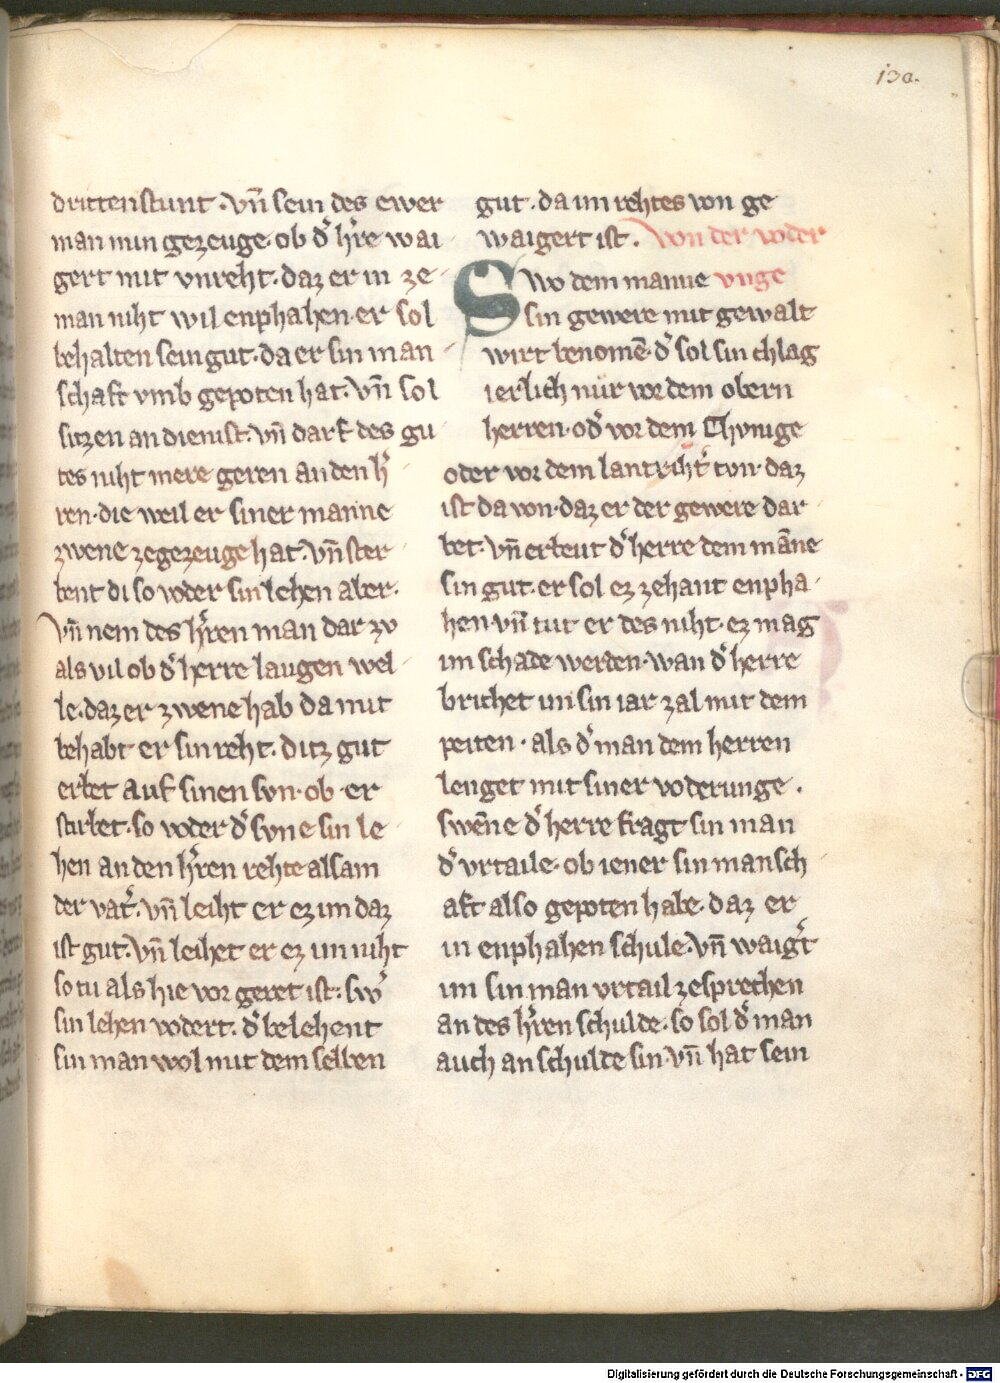 130.
drittenstunt. vn̄ sein des ewer
man min gezeuge. ob d̾ h̾re wai
gert mit vnreht. daz er in ze
man niht wil enphahen. er sol
behalten sein gut. da er sin man
schaft vmb gepoten hat. vn̄ sol
sitzen an dienist. vn̄ darf des gu
tes niht mere geren an den h̾
ren. die weil er siner manne
zwene ze gezeuge hat. vn̄ ster
bent di so voder sin lehen aber.
vn̄ nem des h̾ren man dar zv
als vil ob d̾ herre laugen wel
le. daz er zwene hab da mit
behabt er sin reht. ditz gut
erbet auf sinen svn. ob er
stirbet. so voder d̾ svne sin le
hen an den h̾ren rehte alsam
der vat̾. vn̄ leiht er ez im daz
ist gut. vn̄ leihet er ez im niht
so tu als hie vor geret ist. sw̾
sin lehen vodert. d̾ belehent
sin man wol mit dem selben
gut. da im rehtes von ge
waigert ist. von der voder
Swo dem manne vnge
sin gewere mit gewalt
wirt benomē. d̾ sol sin chlag
ierlich nur vor dem obern
herren. od̾ vor dem Chvnige
oder vor dem lantriht̾ tvn. daz
ist da von. daz er der gewere dar
bet. vn̄ erbeut d̾ herre dem māne
sin gut. er sol ez zehant enpha
hen. vn̄ tut er des niht. ez mag
im schade werden. wan d̾ herre
brichet im sin iar zal mit dem
peiten. als d̾ man dem herren
lenget mit siner voderunge.
swēne d̾ herre fragt sin man
d̾ vrtaile. ob iener sin mansch
aft also gepoten habe. daz er
in enphahen schule. vn̄ waig̾t
im sin man vrtail zesprechen
an des h̾ren schulde. so sol d̾ man
auch an schulde sin. vn̄ hat sein
Digitalisierung gefördert durch die Deutsche Forschungsgemeinschaft - DFG